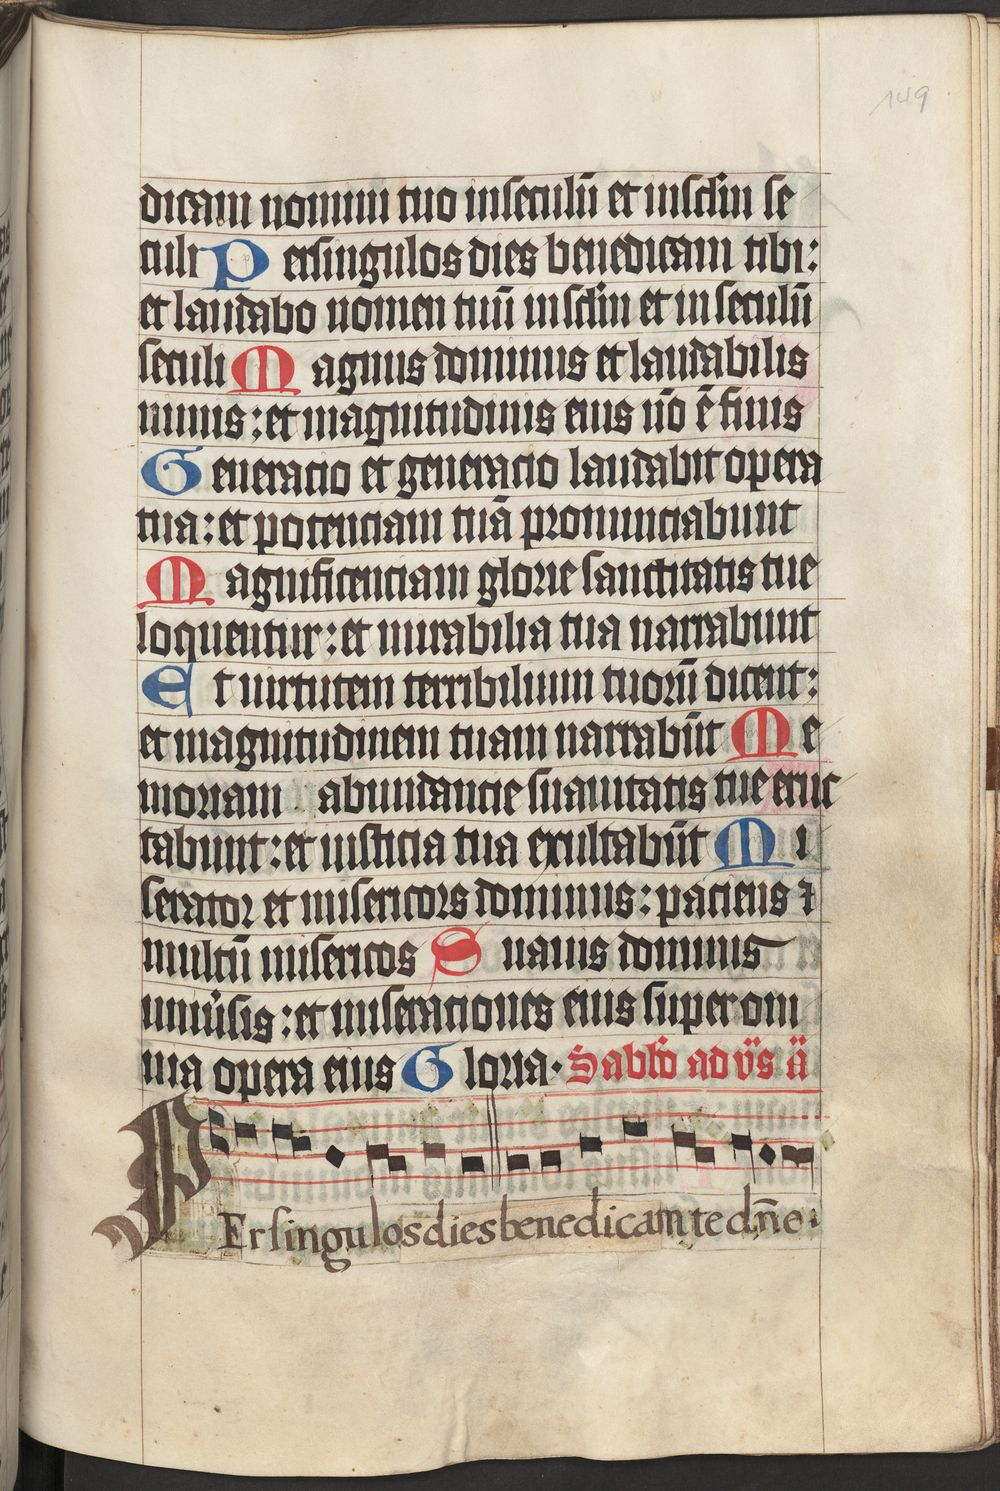 149
dicam nomini tuo in seculū et in sclm̄ se
culi Per singulos dies benedicam tibi:
et laudabo nomen tuū in sclm̄ et in seculū
seculi Magnus dominus et laudabilis
nimis: et magnitudinis eius nō ē finis
Generacio et generacio laudabit opera
tua: et potenciam tuā pronunciabunt
Magnificenciam glorie sanctitatis tue
loquentur: et mirabilia tua narrabunt
Et virtutem terribilium tuorū dicent:
et magnitudinem tuam narrabūt Me
moriam abundancie suavitatis tue eruc
tabunt: et iusticia tua exultabūt Mi
serator et misericors dominus: paciens ⁊
multū misericos Suavis dominus
univ̄sis: et miseraciones eius super om
nia opera eius Gloria. Sabb̄o ad v̄s ā
PEr singulos dies benedicam te dn̄e.